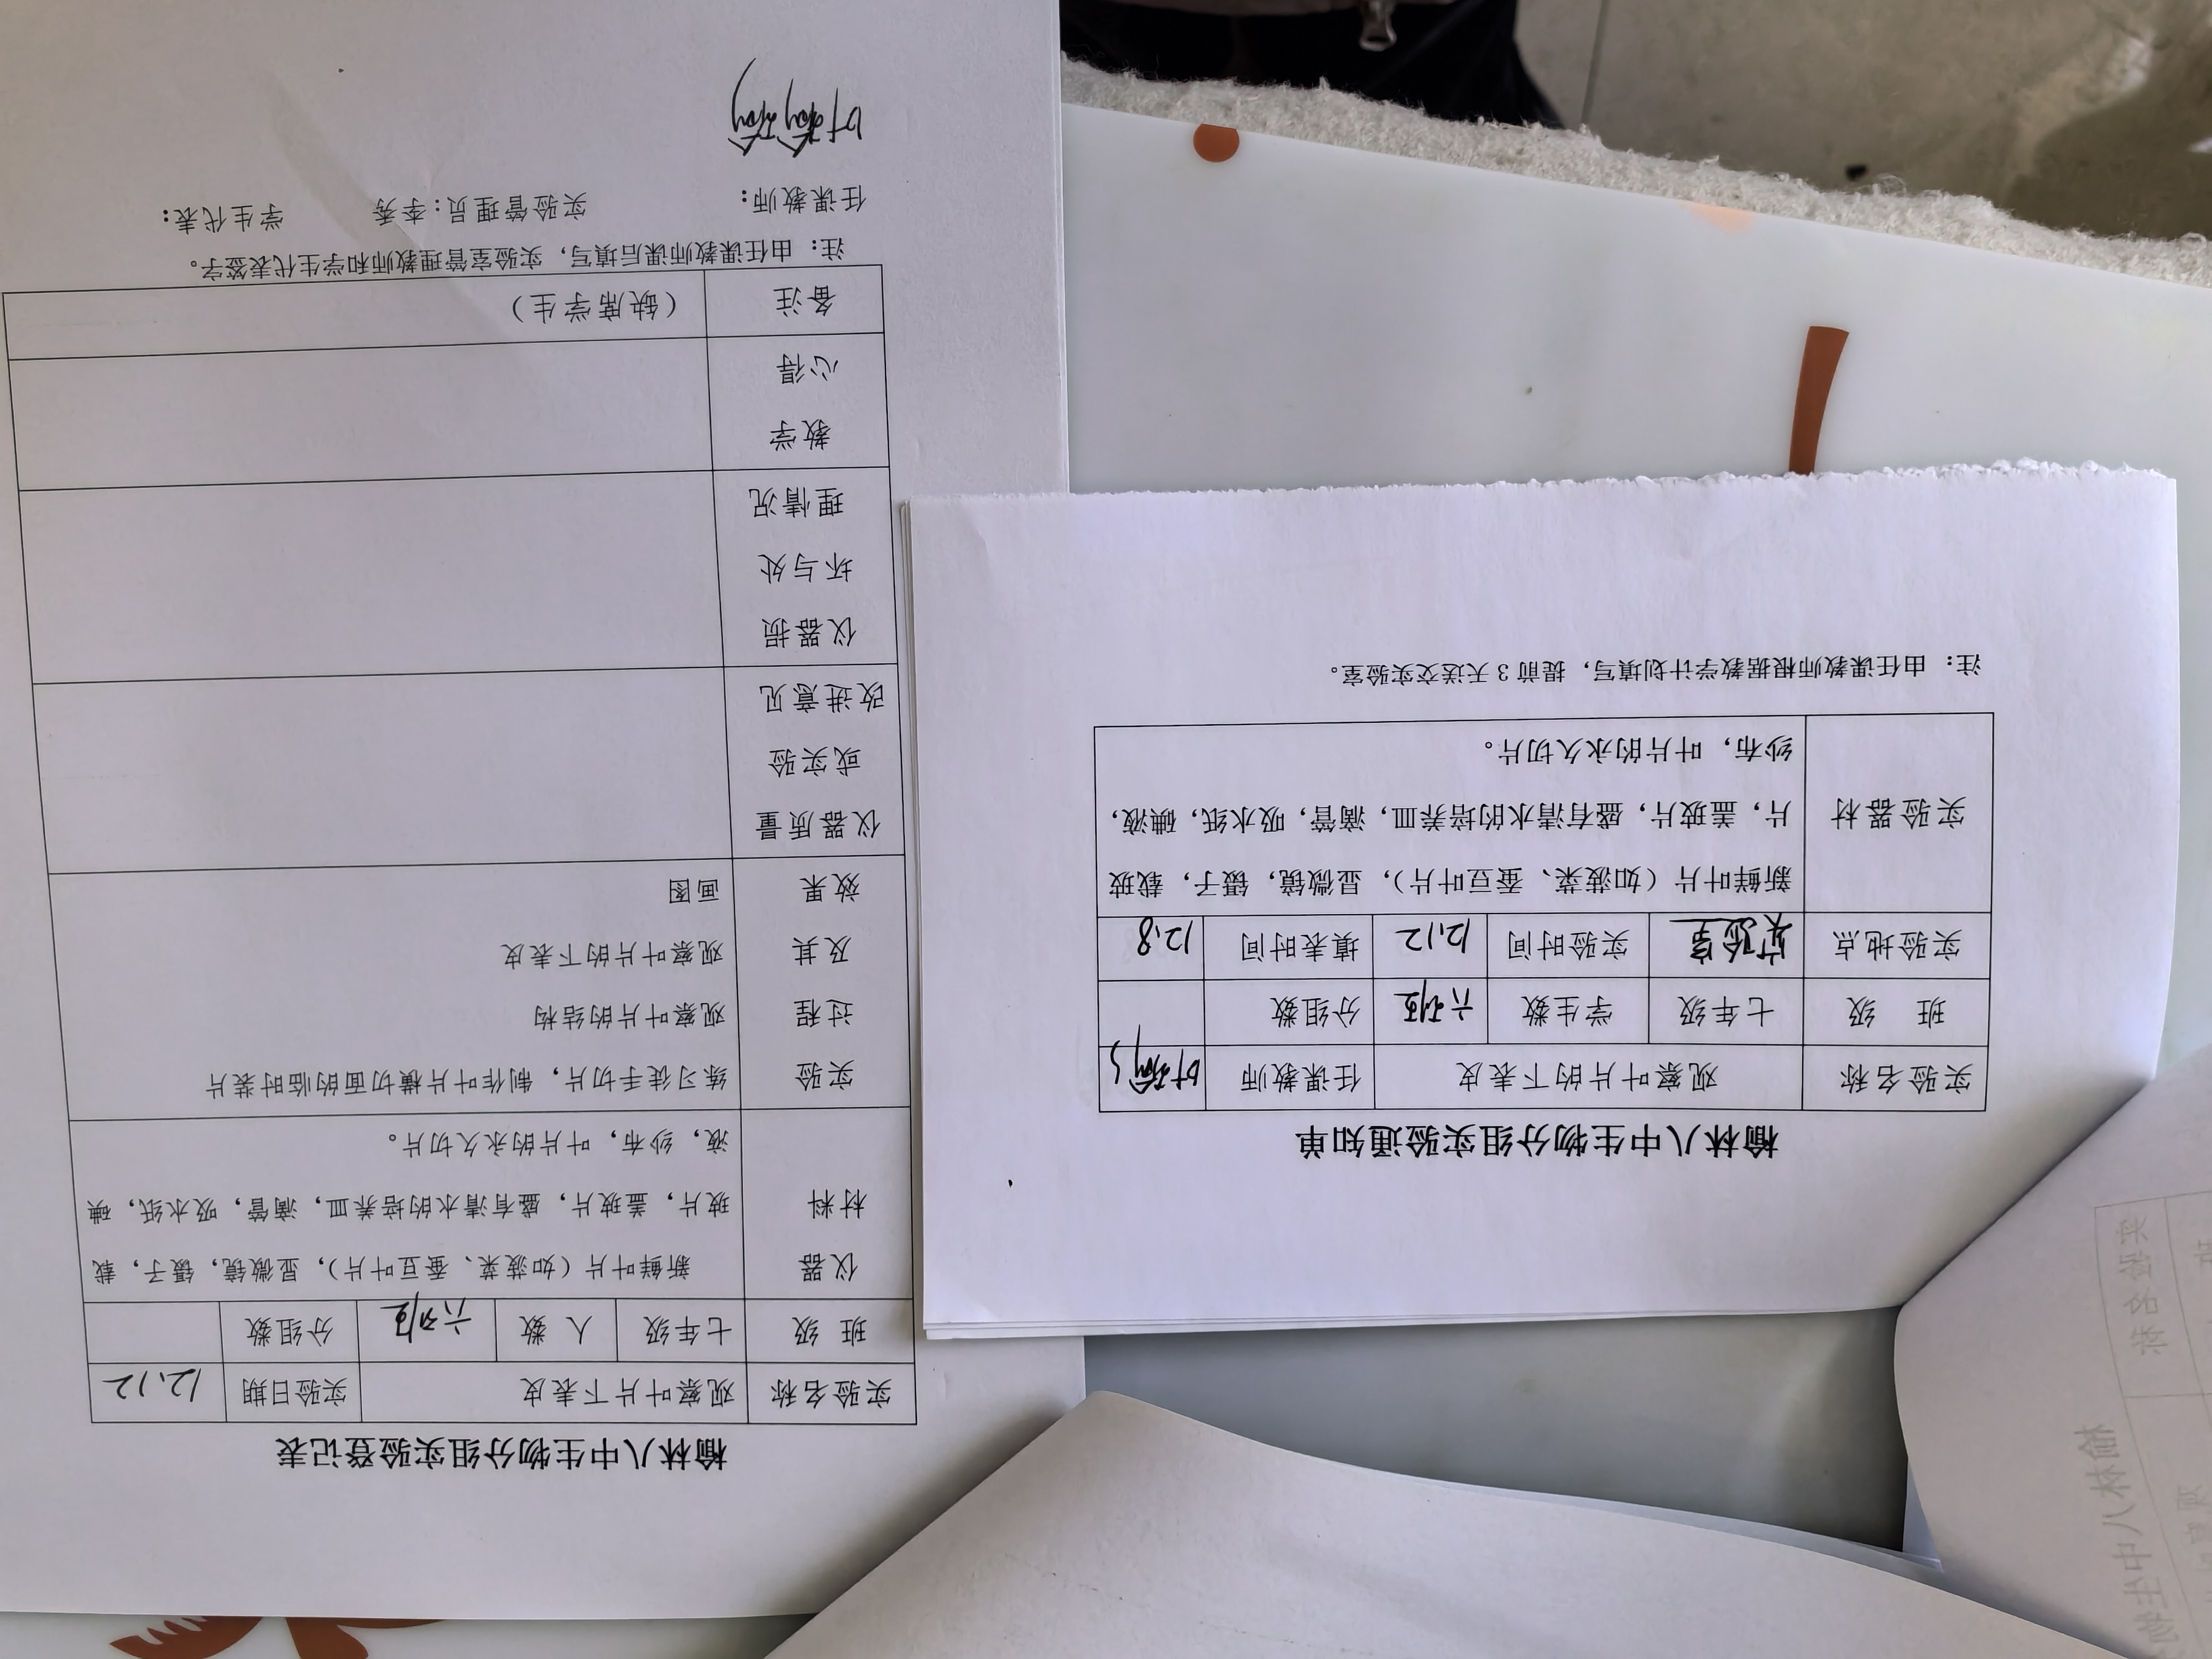 榆林八中生物分组实验通知单
实验名称 观察叶片的下表皮 任课教师
班 级 七年级 学生数 六 分组数
实验地点 实验室 实验时间 12.12 填表时间 12.8
实验器材 新鲜叶片（如菠菜、蚕豆叶片），显微镜，镊子，载玻
片，盖玻片，盛有清水的培养皿，滴管，吸水纸，碘液，
纱布，叶片的永久切片。
注：由任课教师根据教学计划填写，提前 3 天送交实验室。
榆林八中生物分组实验登记表
实验名称 观察叶片下表皮 实验日期 12.12
班 级 七年级 人 数 六 分组数
仪器 新鲜叶片（如菠菜、蚕豆叶片），显微镜，镊子，载
材料 玻片，盖玻片，盛有清水的培养皿，滴管，吸水纸，碘
液，纱布，叶片的永久切片。
实验 练习徒手切片，制作叶片横切面的临时装片
过程 观察叶片的结构
及其 观察叶片的下表皮
效果 画图
仪器质量
或实验
改进意见
仪器损
坏与处
理情况
教学
心得
备注 （缺席学生）
注：由任课教师课后填写，实验室管理教师和学生代表签字。
任课教师： 实验管理员：李秀 学生代表：
榆林八中生物
实验名称 观察
班